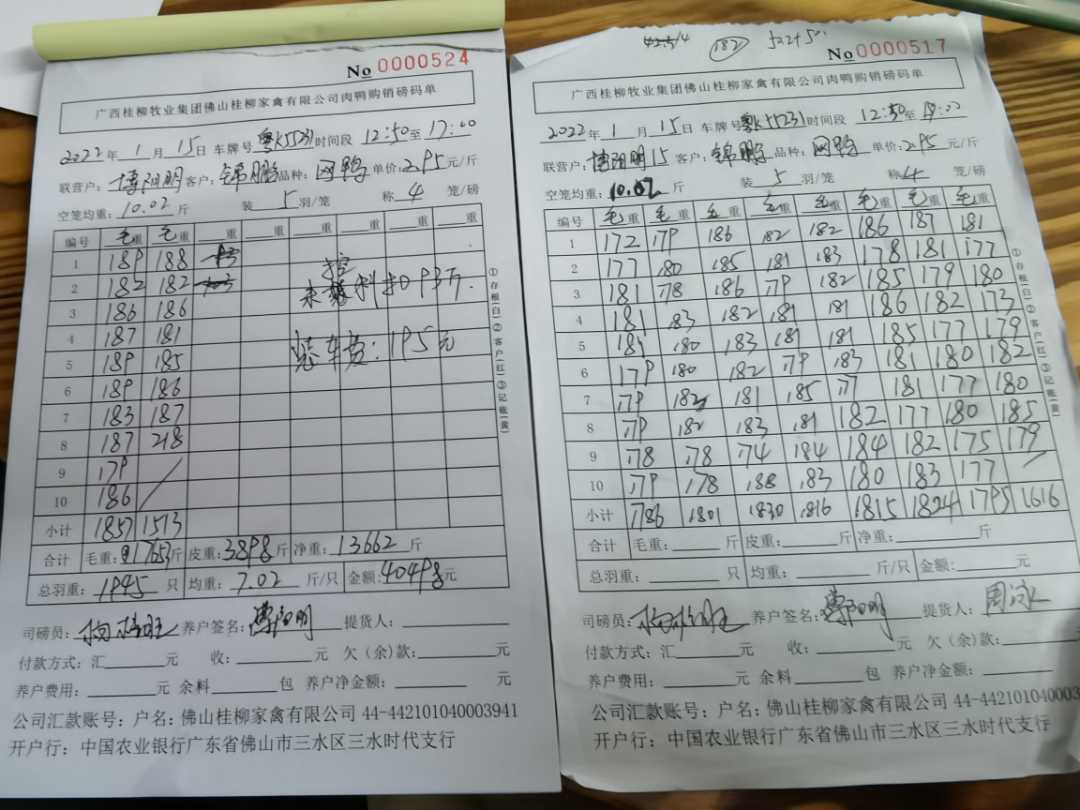 No 0000524
广西桂柳牧业集团佛山桂柳家禽有限公司肉鸭购销磅码单
2022年 1 月 15日 车牌号 粤K55231 时间段 12:50至17:00
联营户: 客户: 锦鹏 品种: 网鸭 单价: 2.95 元/斤
空笼均重: 10.02 斤 装 5 羽/笼 称 4 笼/磅
编号 毛重 毛重 重 重 重 重 重 重
1 189 188
2 182 182
3 186 186
4 187 181
5 189 185
6 189 186
7 183 187
8 187 218
9 179 /
10 186
小计 1857 1513
未 料扣 93斤.
装车费: 195元
合计 毛重: 斤 皮重: 3898 斤 净重: 13662 斤
总羽重: 1945 只 均重: 7.02 斤/只 金额: 40498元
司磅员: 养户签名: 提货人:
付款方式: 汇 元 收: 元 欠(余)款: 元
养户费用: 元 余料 包 养户净金额: 元
公司汇款账号: 户名: 佛山桂柳家禽有限公司 44-442101040003941
开户行: 中国农业银行广东省佛山市三水区三水时代支行
①存根(白)②客户(红)③记账(黄)
182
No 0000517
广西桂柳牧业集团佛山桂柳家禽有限公司肉鸭购销磅码单
2022年 1 月 15日 车牌号 粤K55231 时间段 12:50至 17:00
联营户: 15 客户: 锦鹏 品种: 网鸭 单价: 2.95 元/斤
空笼均重: 10.02 斤 装 5 羽/笼 称 4 笼/磅
编号 毛重 毛重 毛重 毛重 毛重 毛重 毛重 毛重
1 172 179 186 182 182 186 187 181
2 177 180 185 181 183 178 181 177
3 181 178 186 179 182 185 179 180
4 181 183 182 181 181 186 182 173
5 181 180 183 181 181 185 177 179
6 179 180 182 179 183 181 180 182
7 179 182 181 185 177 181 177 180
8 179 182 183 181 182 177 180 185
9 178 178 174 184 184 182 175 179
10 179 178 188 183 180 183 177 /
小计 1786 1801 1830 1816 1815 1824 1795 1616
合计 毛重: 斤 皮重: 斤 净重: 斤
总羽重: 只 均重: 斤/只 金额: 元
司磅员: 养户签名: 提货人: 周泳
付款方式: 汇 元 收: 元 欠(余)款: 元
养户费用: 元 余料 包 养户净金额: 元
公司汇款账号: 户名: 佛山桂柳家禽有限公司 44-442101040003
开户行: 中国农业银行广东省佛山市三水区三水时代支行
①存根(白)②客户(红)③记账(黄)